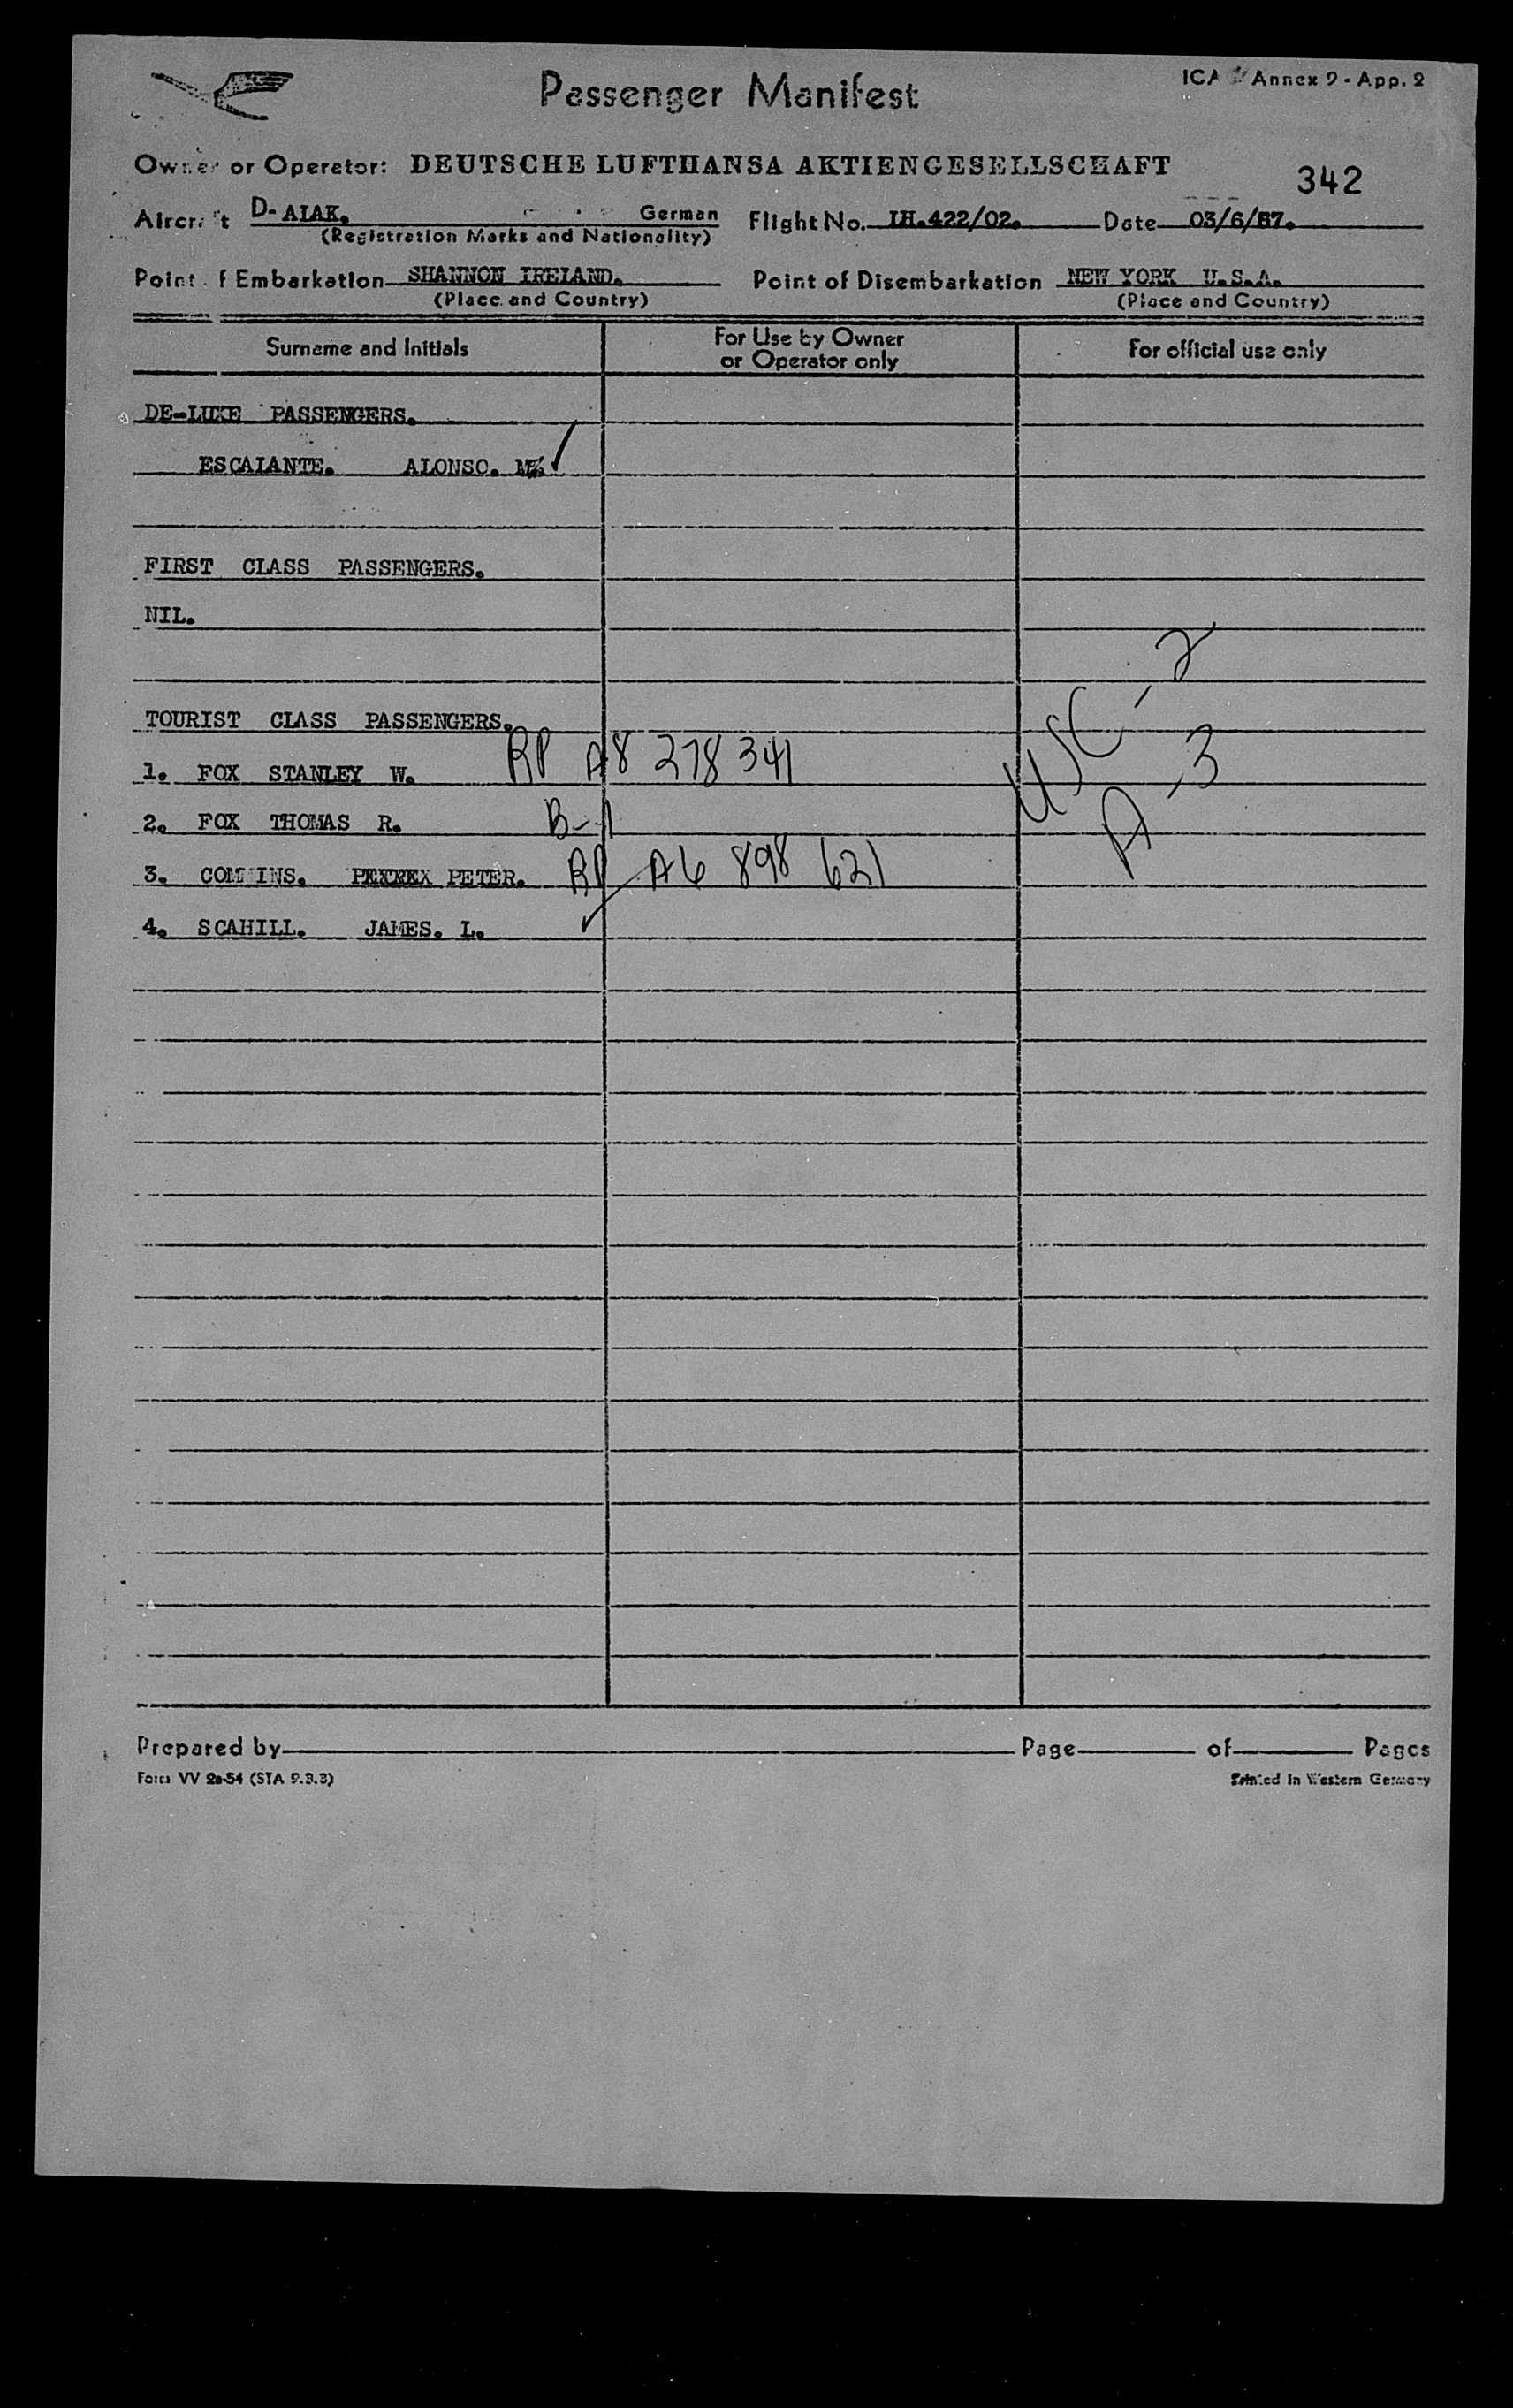 Passenger Manifest
Annex 9 - App. 2
Owner or Operator: DEUTSCHE LUFTHANSA AKTIENGESELLSCHAFT
342
Aircraft D-ALAK. German Flight No. LH.422/02. Date 03/6/57.
(Registration Marks and Nationality)
Point of Embarkation SHANNON IRELAND. Point of Disembarkation NEW YORK U.S.A.
(Place and Country) (Place and Country)
Surname and Initials For Use by Owner or Operator only For official use only
DE-LUXE PASSENGERS.
ESCALANTE. ALONSO. ✓
FIRST CLASS PASSENGERS.
NIL.
USC - 2
TOURIST CLASS PASSENGERS.
A - 3
1. FOX STANLEY W. RP A8 278 341
2. FOX THOMAS R. B-1
3. PETER. RP A6 898 621
4. SCAHILL. JAMES. L. ✓
Prepared by Page of Pages
Form VV 2a-54 (STA 9.3.3) Printed in Western Germany